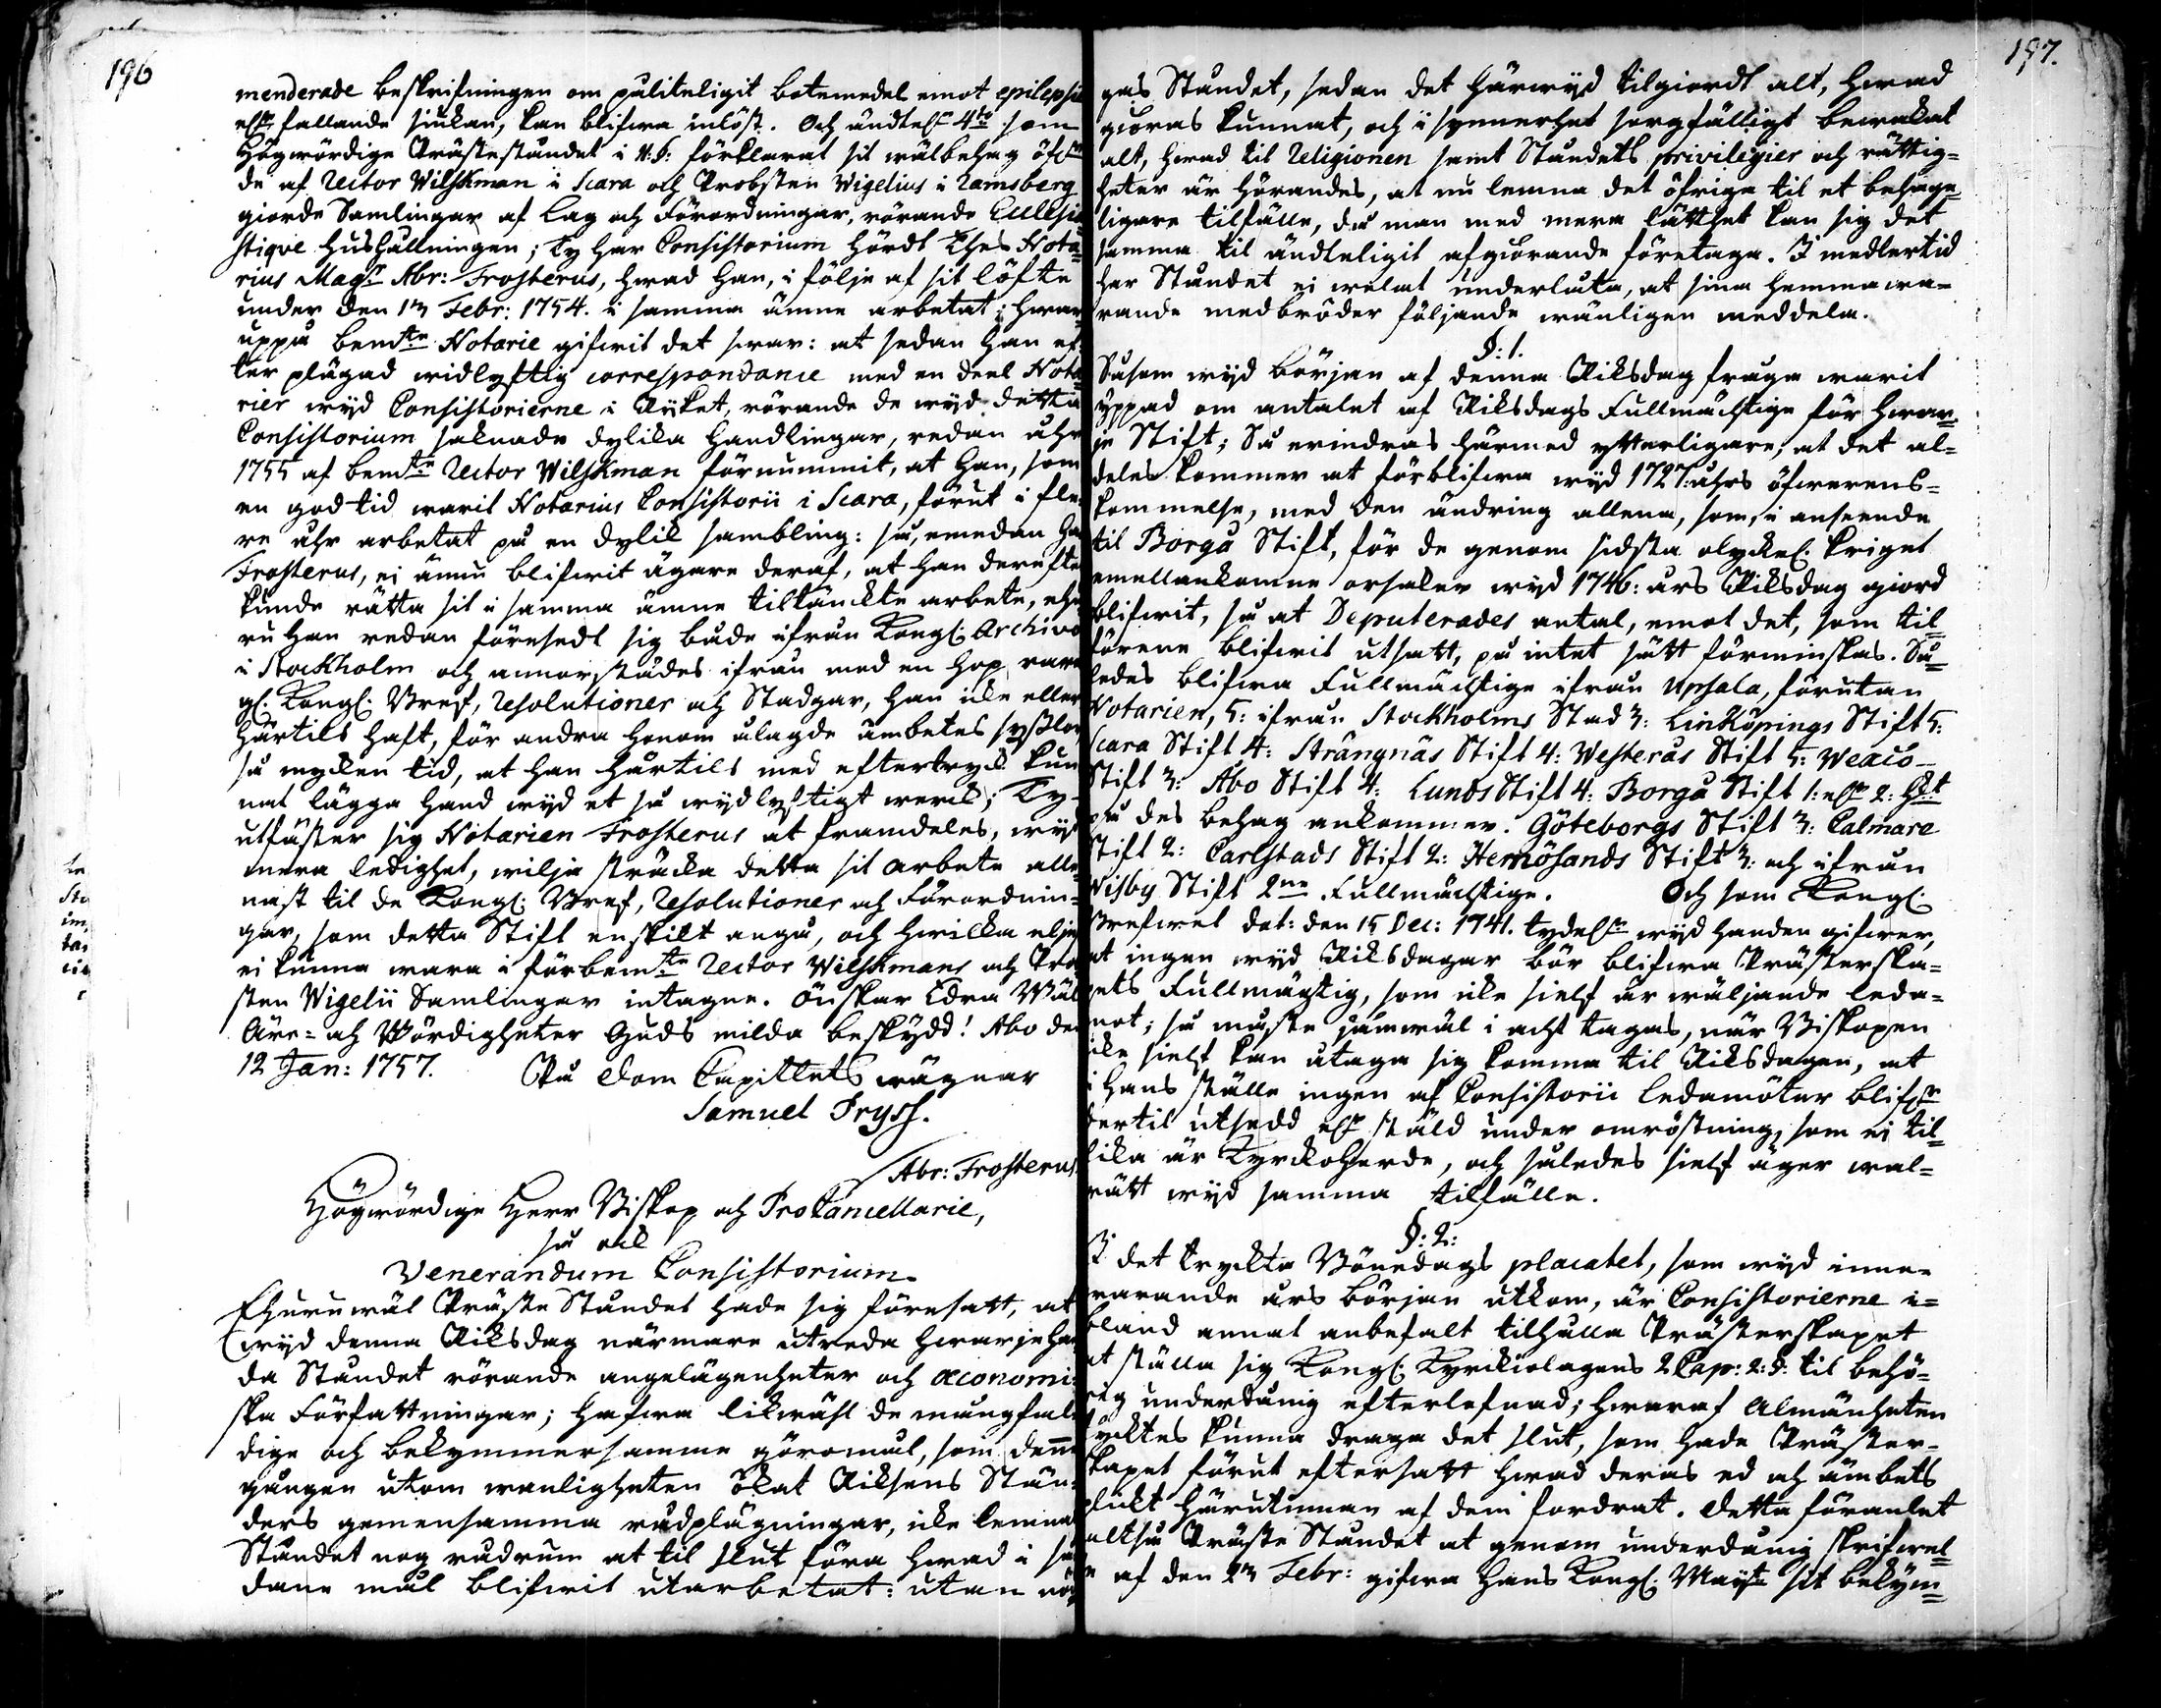 196
menderade beskrifningen om påliteligit botemedel emot epilepsie
eller fallande siukan, kan blifwa inlöst. Och ändtel:n 4:to som
Högwördige Prästeståndet i N: §: förklarat sit wälbehag öfwer
de af Rector Wilskman i Scara och Probsten Wigelius i Ramsberg
giorde Samlingar af Lag och Förordningar, rörande Ecclesia-
stique hushållningen; Ty har Consistorium hördt thes Nota-
rius Mag:r Abr: Frosterus, hwad han, i följe af sit löfte
under den 13 Febr: 1754. i samma ämne arbetat; hwar-
uppå bem:te Notarie gifwit det swar: at sedan han ef-
ter plägad widlyftig correspondance med en deel Nota-
rier wyd Consistorierne i Ryket, rörande de wyd detta
Consistorium saknade dylika handlingar, redan åhr
1755 af bem:te Rector Wilskman förnummit, at han, som
en god tid warit Notarius Consistorii i Scara, förut i fle-
re åhr arbetat på en dylik sambling: så, emedan han
Frosterus, ei ännu blifwit ägare deraf, at han derefter
kunde rätta sit i samma ämne tiltänckte arbete, ehu-
ru han redan försedt sig både ifrån Kongl: Archivo
i Stockholm och annorstädes ifrån med en hop rara
gl: Kongl: Bref, Resolutioner och Stadgar, han icke eller
härtils haft, för andra honom ålagde ämbetes sysslor
så mycken tid, at han härtils med eftertryck kun-
nat lägga hand wyd et så wydlyftigt werck; Ty
utfäster sig Notarien Frosterus at framdeles, wyd
mera ledighet, wilja sträcka detta sit arbete alle-
nast til de Kongl: Bref, Resolutioner och Förordnin-
gar, som detta Stift enskilt angå, och hwilka eljest
ei kunna wara i förbem:te Rector Wilskmans och Prob-
sten Wigelii Samlingar intagne. Önskar Edra Wäl
Äre- och Wördigheter Guds milda beskydd! Abo den
12 Jan: 1757. På Dom Capitlets wägnar
Samuel Pryss.
Abr: Frosterus
Högwördige Herr Biskop och ProCancellarie,
så ock
Venerandum Consistorium.
Ehuruwäl Präste Ståndet hade sig föresatt, at
wyd denna Riksdag närmare utreda hwarjehan-
da Ståndet rörande angelägenheter och oeconomi-
ska Författningar; hafwa likwähl de mångfal-
dige och bekymmersamme göromål, som denne
gången utom wanligheten ökat Riksens Stän-
ders gemensamma rådplägningar, icke lemnat
Ståndet nog rådrum at til slut föra hwad i så-
dane mål blifwit utarbetat: utan nö-
197.
gas Ståndet, sedan det härwyd tilgiordt alt, hwad
giöras kunnat, och i synnerhet sorgfälligt bewakat
alt, hwad til Religionen samt Ståndets privilegier och rättig-
heter är hörandes, at nu lemna det öfriga til et behage-
ligare tilfälle, då man med mera lätthet kan sig det
samma til ändteligit afgiörande företaga. I medlertid
har Ståndet ei welat underlåta, at sina hemmawa-
rande medbröder följande wänligen meddela.
§: 1.
Såsom wyd början af denna Riksdag fråga warit
yppad om antalet af Riksdags Fullmächtige för hwar-
je Stift; Så erindras härmed ytterligare, at det al-
deles kommer at förblifwa wyd 1727: åhrs öfwerens-
kommelse, med den ändring allena, som, i anseende
til Borgå Stift, för de genom sidsta olyckel: kriget
emellankomne orsaker wyd 1746: års Riksdag giord
blifwit, så at Deputerades antal, emot det, som til-
förene blifwit utsatt, på intet sätt förminskas. Så-
ledes blifwa Fullmächtige ifrån Upsala, förutan
Notarien, 5: ifrån Stockholms Stad 3: Linköpings Stift 5:
Scara Stift 4: Strängnäs Stift 4: Westerås Stift 5: Wexiö-
Stift 3: Åbo Stift 4: Lunds Stift 4: Borgå Stift 1: eller 2:
på des behag ankommer. Göteborgs Stift 3: Calmare
Stift 2: Carlstads Stift 2: Hernösands Stift 3: och ifrån
Wisby Stift 2:ne Fullmächtige. Och som Kongl:
Brefwet dat: den 15 Dec: 1741. tydel:n wyd handen gifwer,
at ingen wyd Riksdagar bör blifwa Prästerska-
pets Fullmägtig, som icke sielf är wäljande leda-
mot; så måste jämwäl i acht tagas, när Biskopen
icke sielf kan åtaga sig komma til Riksdagen, at
i hans ställe ingen af Consistorii Ledamöter blifwer
dertil utsedd eller stäld under omröstning, som ei til-
lika är Kyrckoherde, och således sielf äger wal-
rätt wyd samma tilfälle.
§: 2:
I det tryckta Bönedags placatet, som wyd inne-
warande års början utkom, är Consistorierne i-
bland annat anbefalt tilhålla Prästerskapet
at ställa sig Kongl: Kyrckiolagens 2 Cap: 2: §: til behö-
rig underdånig efterlefnad; hwaraf Almänheten
tycktes kunna draga det slut, som hade Präster-
skapet förut eftersatt hwad deras ed och ämbets
plikt härutinnan af dem fordrat. Detta föranlet
altså Präste Ståndet at genom underdånig skrifwel-
se af den 23 Febr: gifwa Hans Kongl: Maij:t sit bekym-